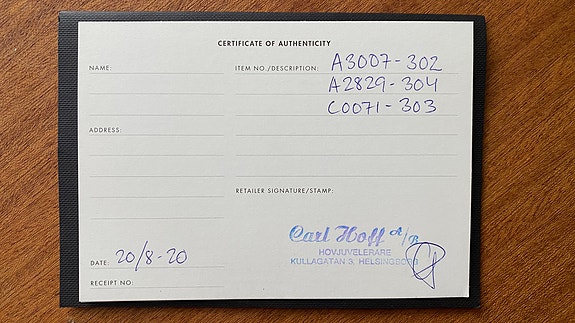 CERTIFICATE OF AUTHENTICITY
NAME:
ITEM NO./DESCRIPTION: A3007-302
A2829-304
C0071-303
ADDRESS:
RETAILER SIGNATURE/STAMP:
Carl Hoff A/B
HOVJUVELERARE
KULLAGATAN 3, HELSINGBORG
DATE: 20/8-20
RECEIPT NO: